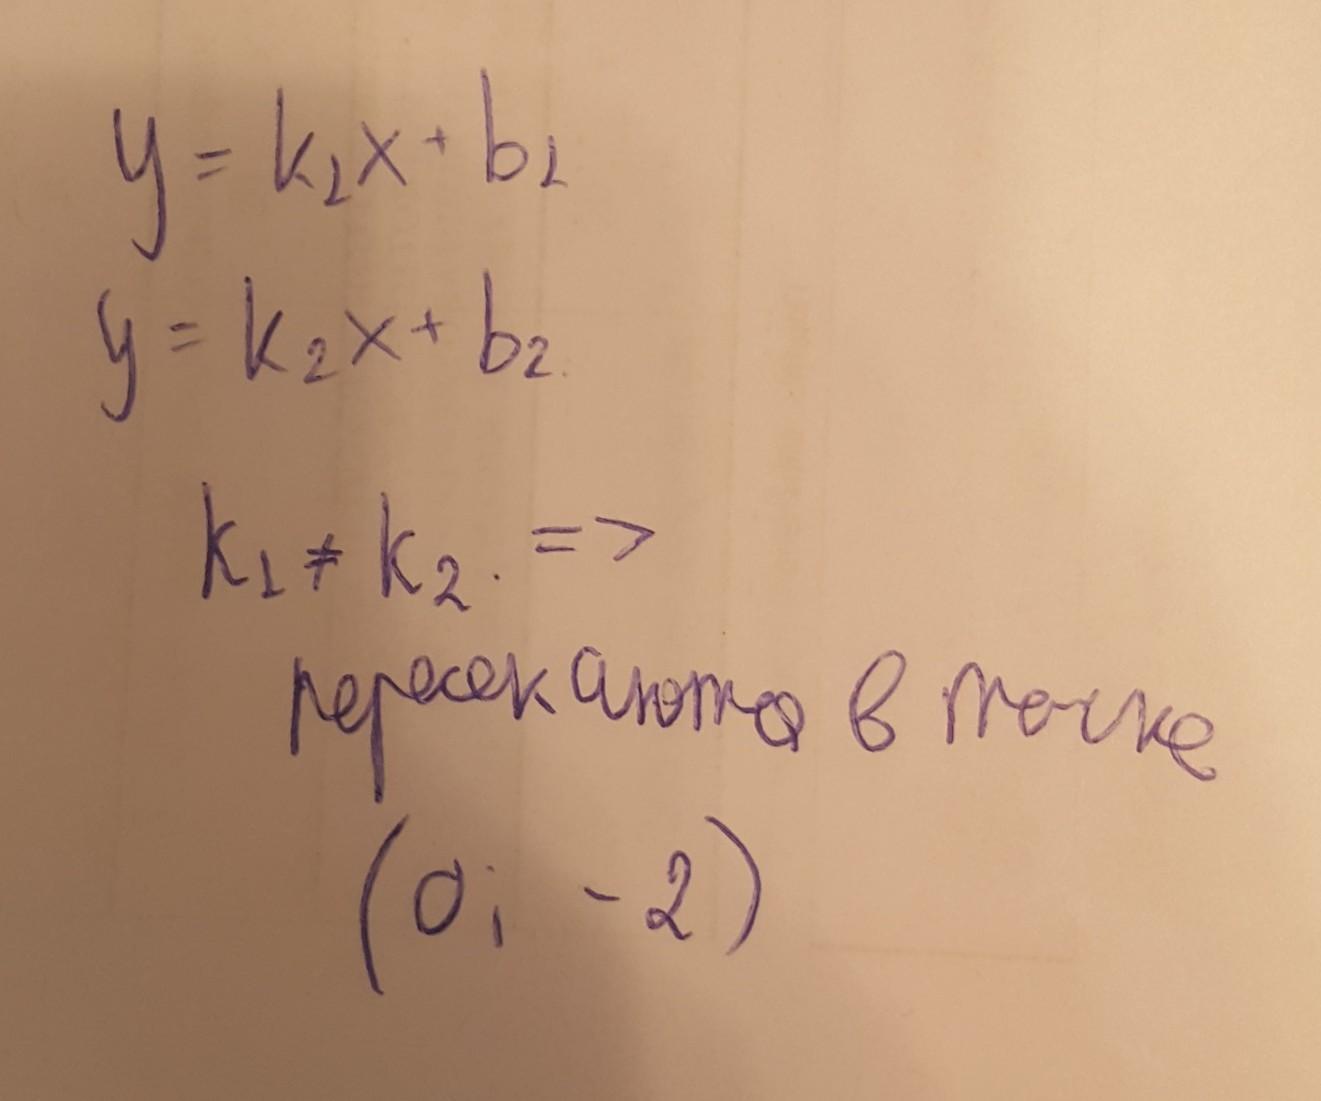 y = k₁x + b₁
y = k₂x + b₂.
k₁ ≠ k₂. =>
пересекаются в точке
(0; -2)